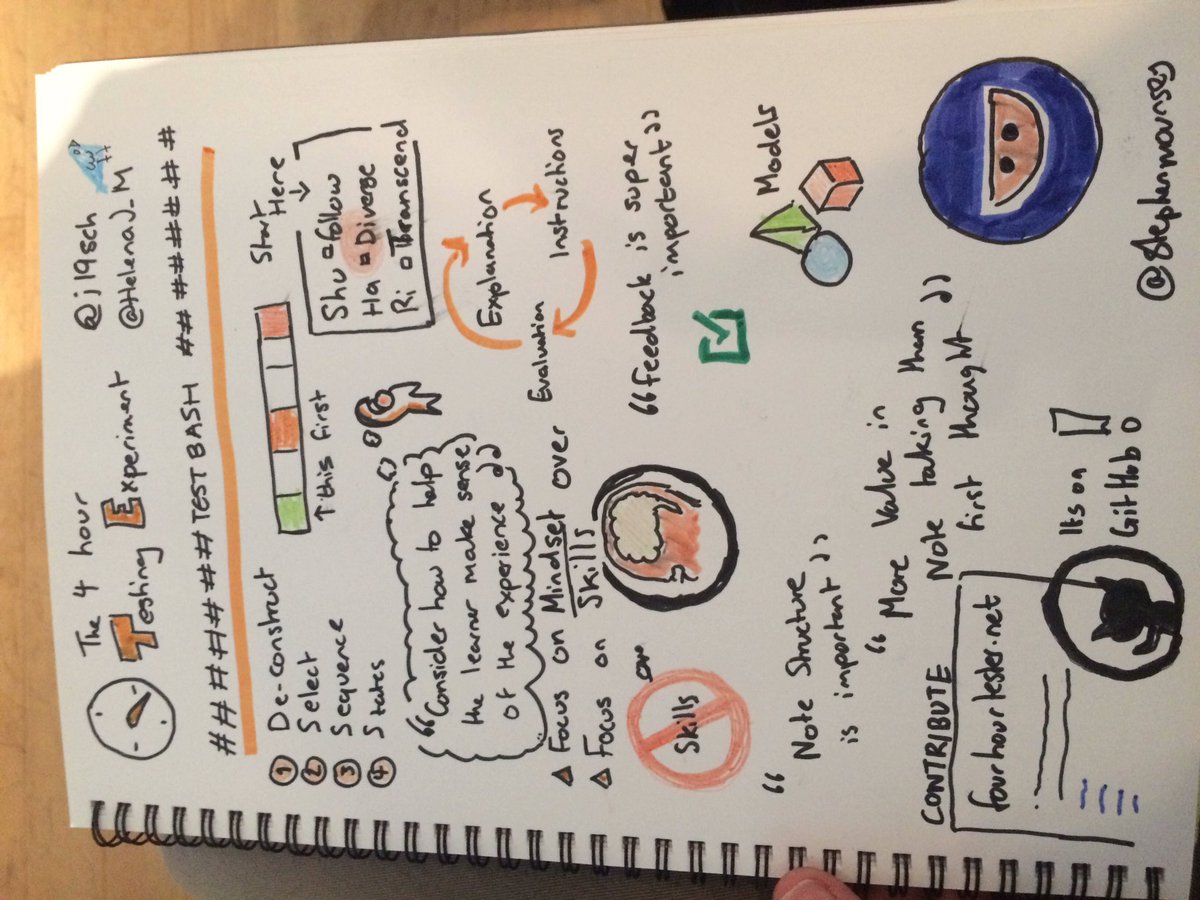 The 4 hour
Testing Experiment
@j19sch
@HelenaJ_M
########TESTBASH ########
① De-construct
② Select
③ Sequence
④ States
↑this first
Start
Here
↓
Shu = follow
Ha = Diverge
Ri = Transcend
“Consider how to help
the learner make sense
of the experience”
Explanation
Instructions
Evaluation
△ Focus on Mindset over
△ Focus on Skills
Skills
or
“feedback is super
important”
“Note Structure
is important”
Models
“More Value in
Note taking than
first thought”
CONTRIBUTE
fourhourtester.net
Its on
GitHub
@Stephenmounsey